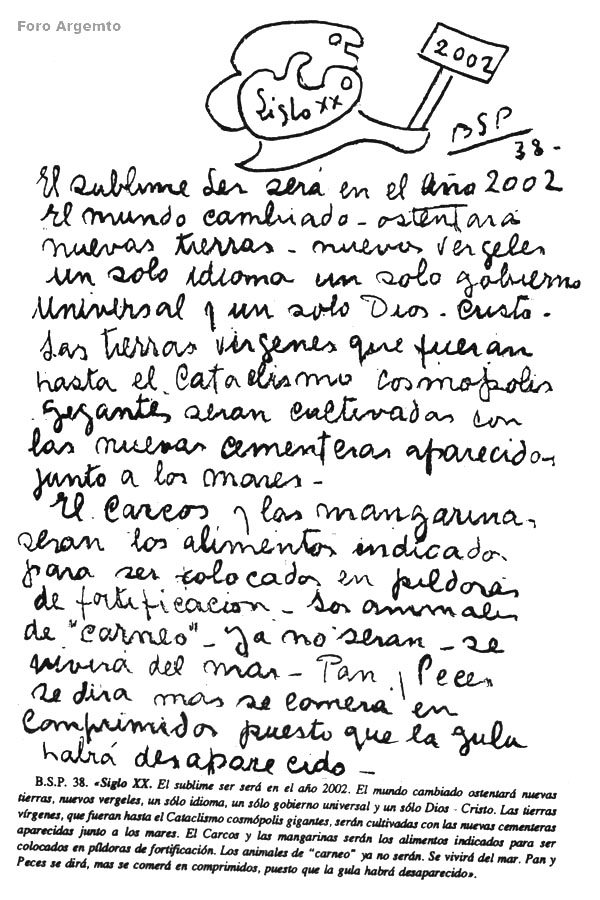 Foro Argemto
2002
Siglo XX
BSP
38-
El sublime Ser será en el Año 2002
El mundo cambiado - ostentará
nuevas tierras - nuevos vergeles
un solo idioma un solo gobierno
Universal y un solo Dios - Cristo -
Las tierras virgenes que fueran
hasta el Cataclismo cosmopolis
gigantes seran cultivadas con
las nuevas cementeras aparecidas
junto a los mares -
El Carcos y las mangarinas
seran los alimentos indicados
para ser colocados en pildoras
de fortificacion - Los animales
de "carneo" - ya no seran - se
vivirá del mar - Pan y Peces
se dira mas se comera en
comprimidos puesto que la gula
habrá desaparecido -
B.S.P. 38. «Siglo XX. El sublime ser será en el año 2002. El mundo cambiado ostentará nuevas
tierras, nuevos vergeles, un sólo idioma, un sólo gobierno universal y un sólo Dios - Cristo. Las tierras
vírgenes, que fueran hasta el Cataclismo cosmópolis gigantes, serán cultivadas con las nuevas cementeras
aparecidas junto a los mares. El Carcos y las mangarinas serán los alimentos indicados para ser
colocados en píldoras de fortificación. Los animales de "carneo" ya no serán. Se vivirá del mar. Pan y
Peces se dirá, mas se comerá en comprimidos, puesto que la gula habrá desaparecido».